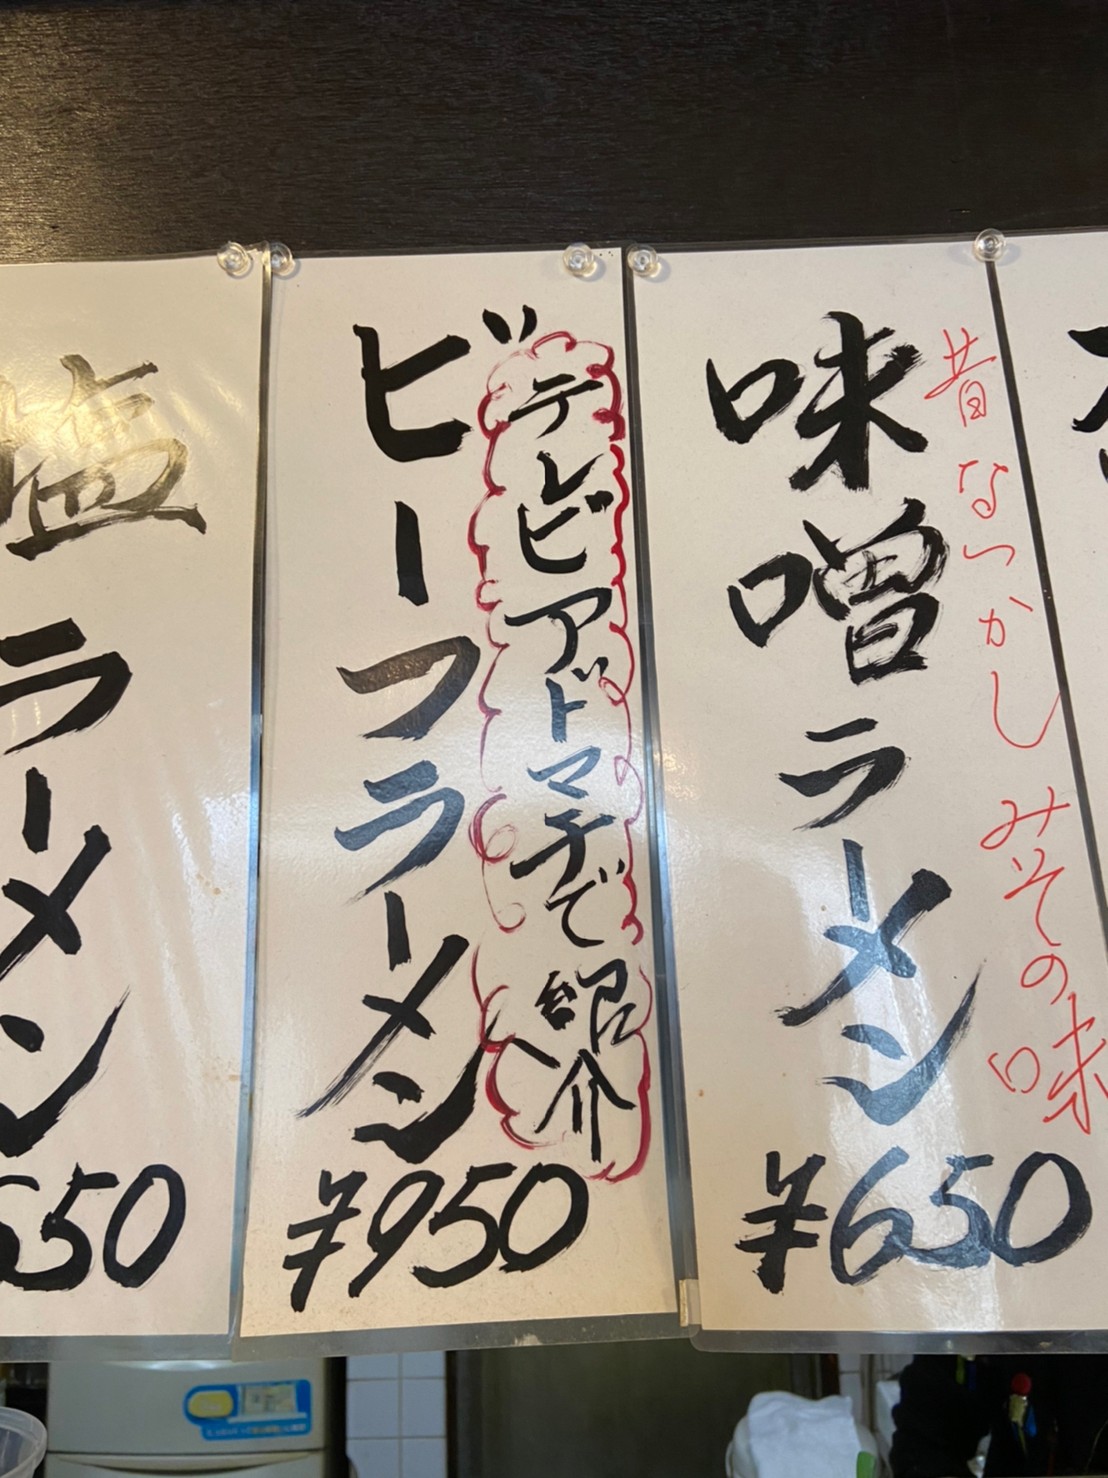 昔なつかし みその味
味噌ラーメン
¥650
テレビアドマチで紹介
ビーフラーメン
¥950
塩ラーメン
650